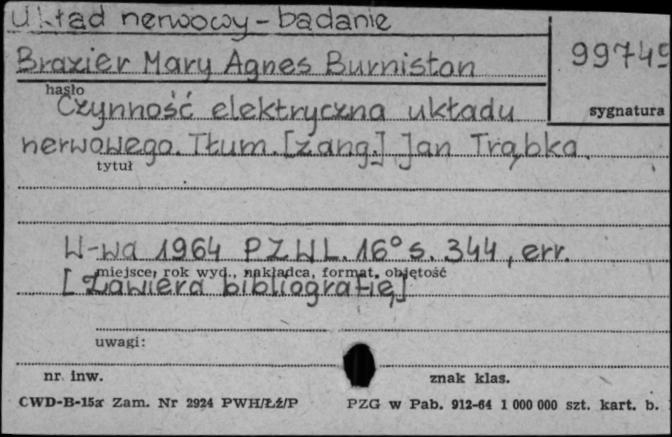 Układ nerwowy - badanie
Brazier Mary Agnes Burniston
99749
hasło
Czynność elektryczna układu
sygnatura
nerwowego. Tłum. [z ang.] Jan Trąbka.
tytuł
W-wa 1964 PZWL. 16° s. 344, err.
miejsce, rok wyd., nakładca, format, objętość
[Zawiera bibliografię]
uwagi:
nr inw.
znak klas.
CWD-B-15a Zam. Nr 2924 PWH/Łź/P
PZG w Pab. 912-64 1 000 000 szt. kart. b.